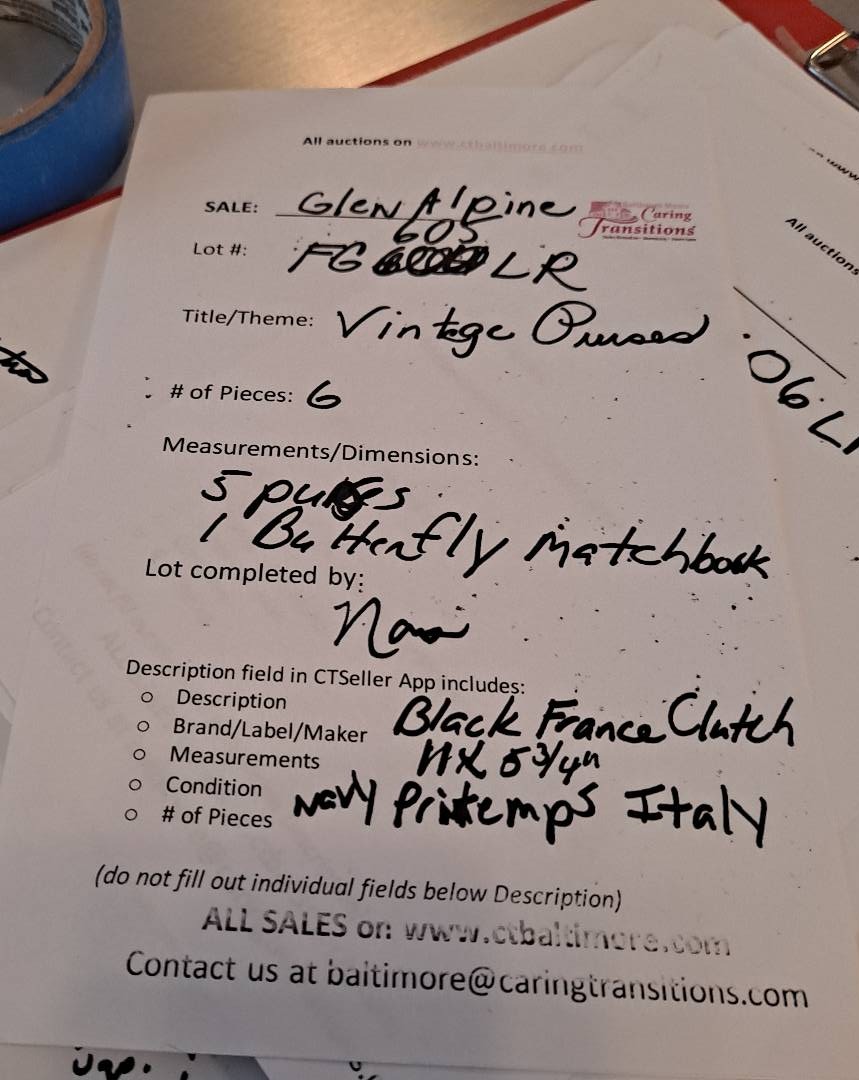 All auctions on www.ctbaltimore.com
SALE: Glen Alpine
Caring
Transitions
605
Lot #: FG LR
Title/Theme: Vintage Purses
# of Pieces: 6
Measurements/Dimensions:
5 purses
1 Butterfly Matchbook
Lot completed by:
Description field in CTSeller App includes:
○ Description
○ Brand/Label/Maker Black France Clutch
○ Measurements 11 X 5 3/4"
○ Condition Navy Printemps Italy
○ # of Pieces
(do not fill out individual fields below Description)
ALL SALES on: www.ctbaltimore.com
Contact us at baltimore@caringtransitions.com
www
All auctions
06 L